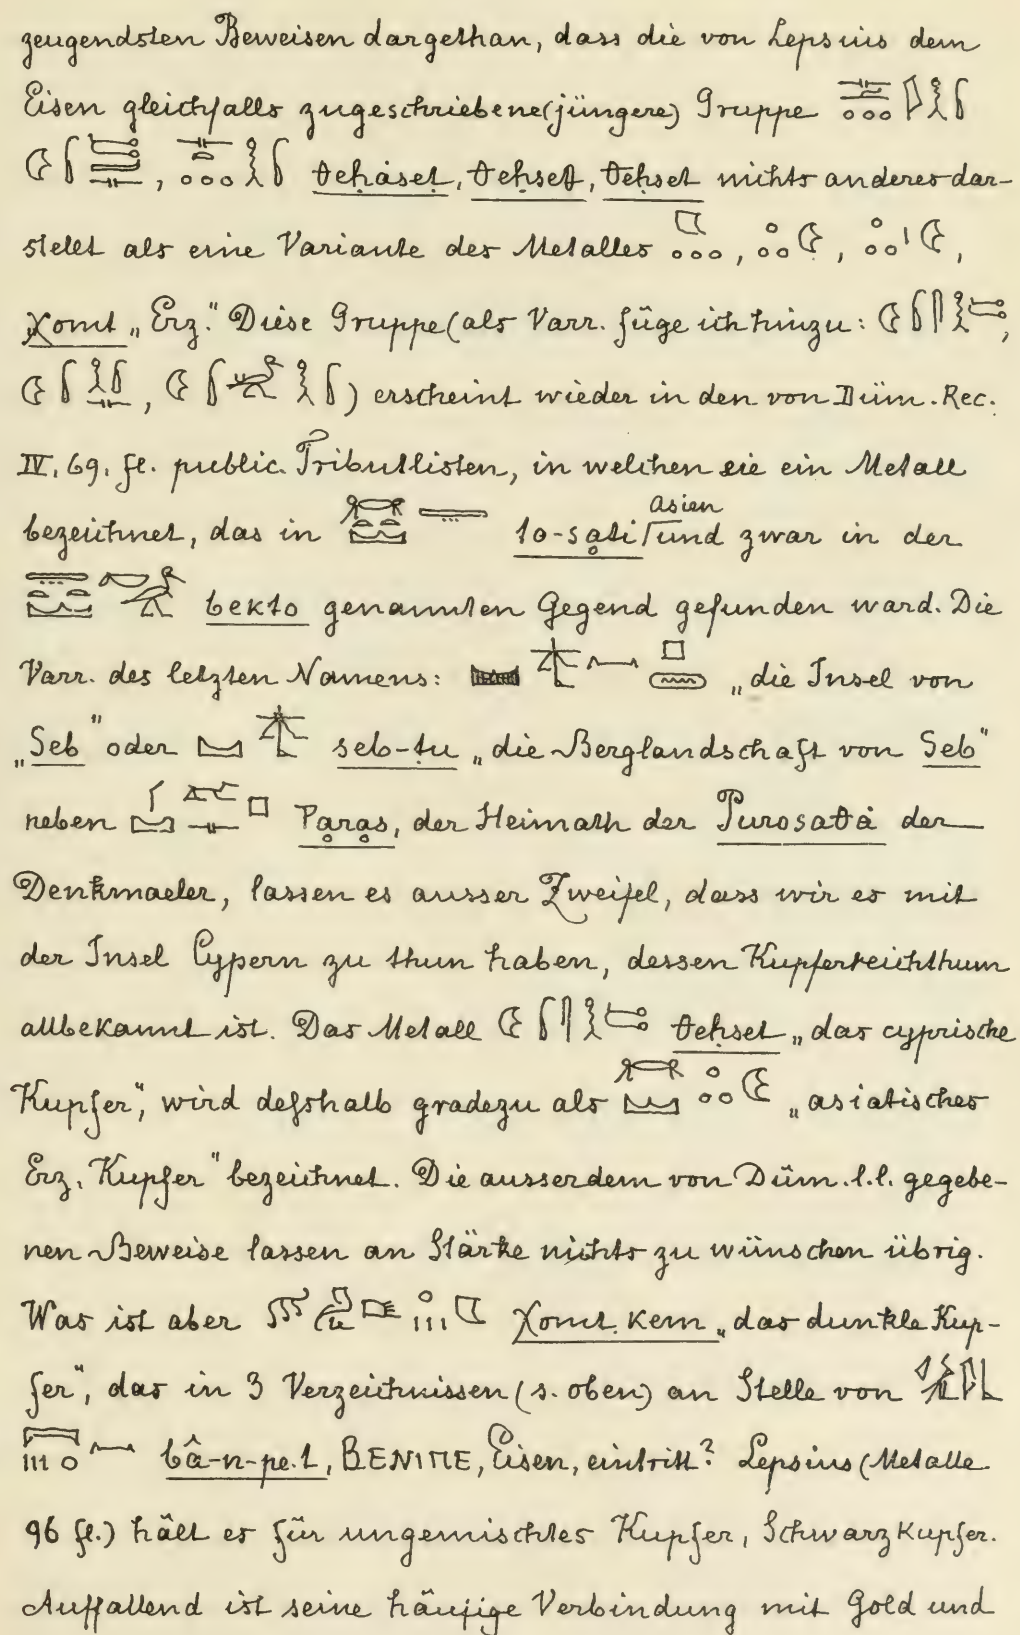 zeugendsten Beweisen dargethan, dass die von Lepsius dem
Eisen gleichfalls zugeschriebene (jüngere) Gruppe
, teḥaset, teḥset, teḥset nichts anderes dar-
stellt als eine Variante des Metalles , , ,
χomt „Erz." Diese Gruppe (als Varr. füge ich hinzu: ,
, ) erscheint wieder in den von Düm. Rec.
IV, 69, fl. public. Tributlisten, in welchen sie ein Metall
bezeichnet, das in to-sati Asien und zwar in der
bekto genannten Gegend gefunden ward. Die
Varr. des letzten Namens: „die Insel von
„Seb" oder seb-tu „die Berglandschaft von Seb"
neben Paras, der Heimath der Purosata der
Denkmaeler, lassen es ausser Zweifel, dass wir es mit
der Insel Cypern zu thun haben, dessen Kupferreichthum
allbekannt ist. Das Metall teḥset „das cyprische
Kupfer", wird desshalb gradezu als „asiatisches
Erz, Kupfer" bezeichnet. Die ausserdem von Düm. l.l. gegebe-
nen Beweise lassen an Stärke nichts zu wünschen übrig.
Was ist aber χomt kem „das dunkle Kup-
fer", das in 3 Verzeichnissen (s. oben) an Stelle von
bâ-n-pe.t, ΒΕΝΙΠΕ, Eisen, eintritt? Lepsius (Metalle
96 fl.) hält es für ungemischtes Kupfer, Schwarzkupfer.
Auffallend ist seine häufige Verbindung mit Gold und